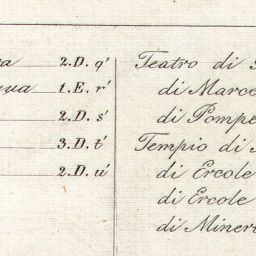 2.D. q'
1.E. r'
2.D. s'
3.D. t'
2.D. u'
Teatro di
di Marce
di Pompe
Tempio di
di Ercole
di Ercole
di Miner